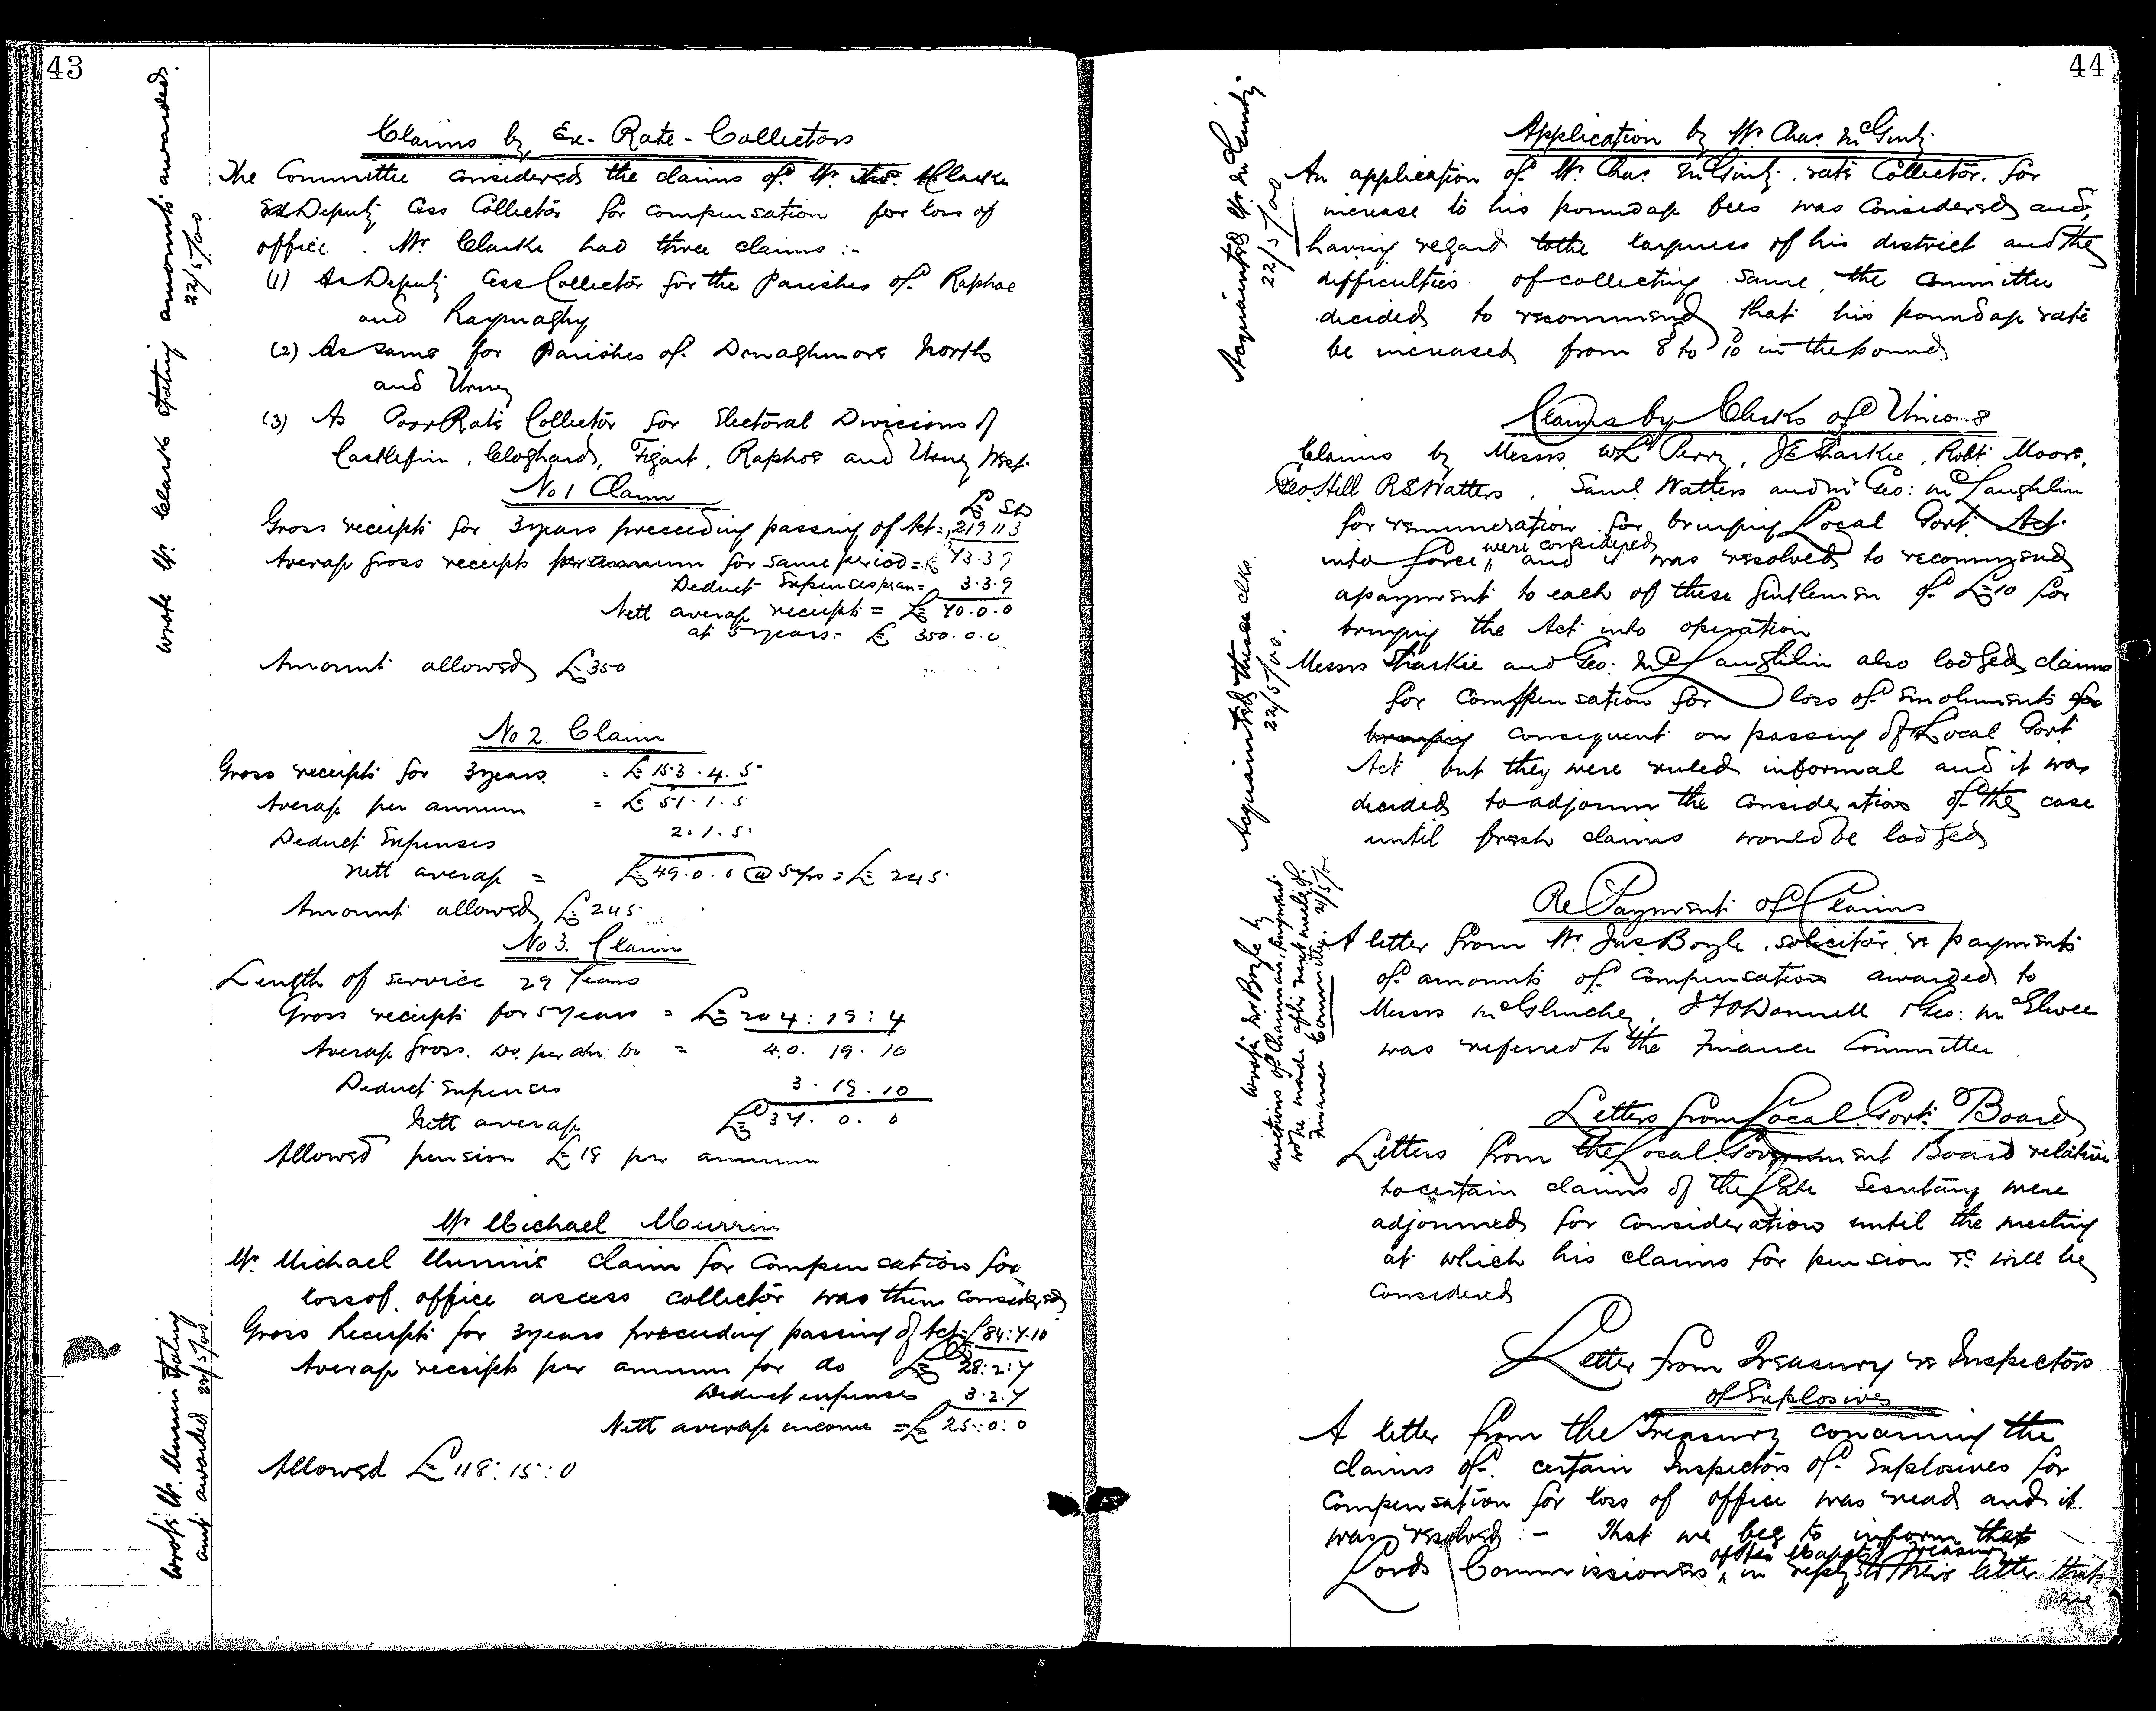 43
Wrote Mr. Clarke stating amounts awarded.
22/5/00
Claims by Ex-Rate-Collectors
The Committee considered the claims of Mr. Clarke
Deputy Cess Collector for compensation for loss of
office. Mr Clarke had three claims :-
(1) As Deputy Cess Collector for the Parishes of Raphoe
and Raymoghy
(2) As same for Parishes of Donaghmore North
and Urney
(3) As Poor Rate Collector for Electoral Divisions of
Castlefin, Cloghard, Feigart, Raphoe and Urney West.
No 1 Claim
£ S D
Gross receipts for 3 years preceeding passing of Act = 219 11 3
Average gross receipts per annum for same period = £ 73.3 9
Deduct Expenses per an = 3.3.9
Nett average receipts = £ 70.0.0
at 5 years = £ 350.0.0
Amount allowed £350
No 2. Claim
Gross receipts for 3 years = £ 153.4.5
Average per annum = £ 51.1.5
Deduct Expenses 2.1.5.
Nett average = £49.0.0 @ 5 yrs = £ 245.
Amount allowed £245
No 3. Claim
Length of service 29 Years
Gross receipts for 5 Years = £204:19:4
Average gross. Do. per an. Do = 40. 19. 10
Deduct Expenses 3. 19. 10
Nett average £37. 0. 0
Allowed pension £18 per annum
Mr Michael Murrin
Mr. Michael Murrin's claim for Compensation for
loss of office as cess collector was then considered
Gross Receipts for 3 years preceeding passing of Act = £84:7.10
Average receipts per annum for do £ 28:2:7
Deduct expenses 3.2.7
Nett average income = £ 25:0:0
Allowed £118:15:0
Wrote Mr. Murrin stating
amt awarded 22/5/00
44
Acquainted Mr McGinty
22/5/00
Application by Mr. Chas. McGinty
An application of Mr. Chas. McGinty, rate Collector, for
increase to his poundage fees was considered and,
having regard to the largeness of his district and the
difficulties of collecting same, the Committee
decided to recommend that his poundage rate
be increased from 8d to 10d in the pound
Claims by Clerks of Unions
Acquainted these clks.
22/5/00.
Claims by Messrs. WL Perry, JE Sharkie, Robt. Moore,
Geo. Hill RS Watters, Saml. Watters and Mr Geo: McLaughlin
for remuneration for bringing Local Govt. Act
were considered
into force, and it was resolved to recommend
a payment to each of these gentlemen of £10 for
bringing the Act into operation
Messrs Sharkie and Geo: McLaughlin also lodged claims
for Compensation for loss of emoluments for
bringing consequent on passing of Local Govt
Act but they were ruled informal and it was
decided to adjourn the consideration of the case
until fresh claims would be lodged
Re Payment of Claims
Wrote Mr Boyle by
directions of Chairman, payment
wd be made after next meeting of
Finance Committee. 21/5/00
A letter from Mr. Jas Boyle, solicitor, re payments
of amounts of Compensation awarded to
Messrs McGlinchey, J F O'Donnell & Geo: McElwee
was referred to the Finance Committee
Letters from Local Govt. Board
Letters from the Local Government Board relative
to certain claims of the late Secretary were
adjourned for consideration until the meeting
at which his claims for pension &c will be
considered
Letter from Treasury re Inspectors
of Explosives
A letter from the Treasury concerning the
claims of certain Inspectors of Explosives for
Compensation for loss of office was read and it
was resolved :- That we beg to inform the
of Her Majesty's Treasury
Lords Commissioners, in reply to their letter that
we